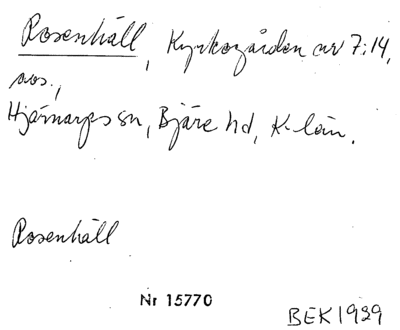 Rosenhäll, Kyrkogården nr 7:14,
Hjärnarps sn, Bjäre hd, K-län.
Rosenhäll
Nr 15770
BEK 1939